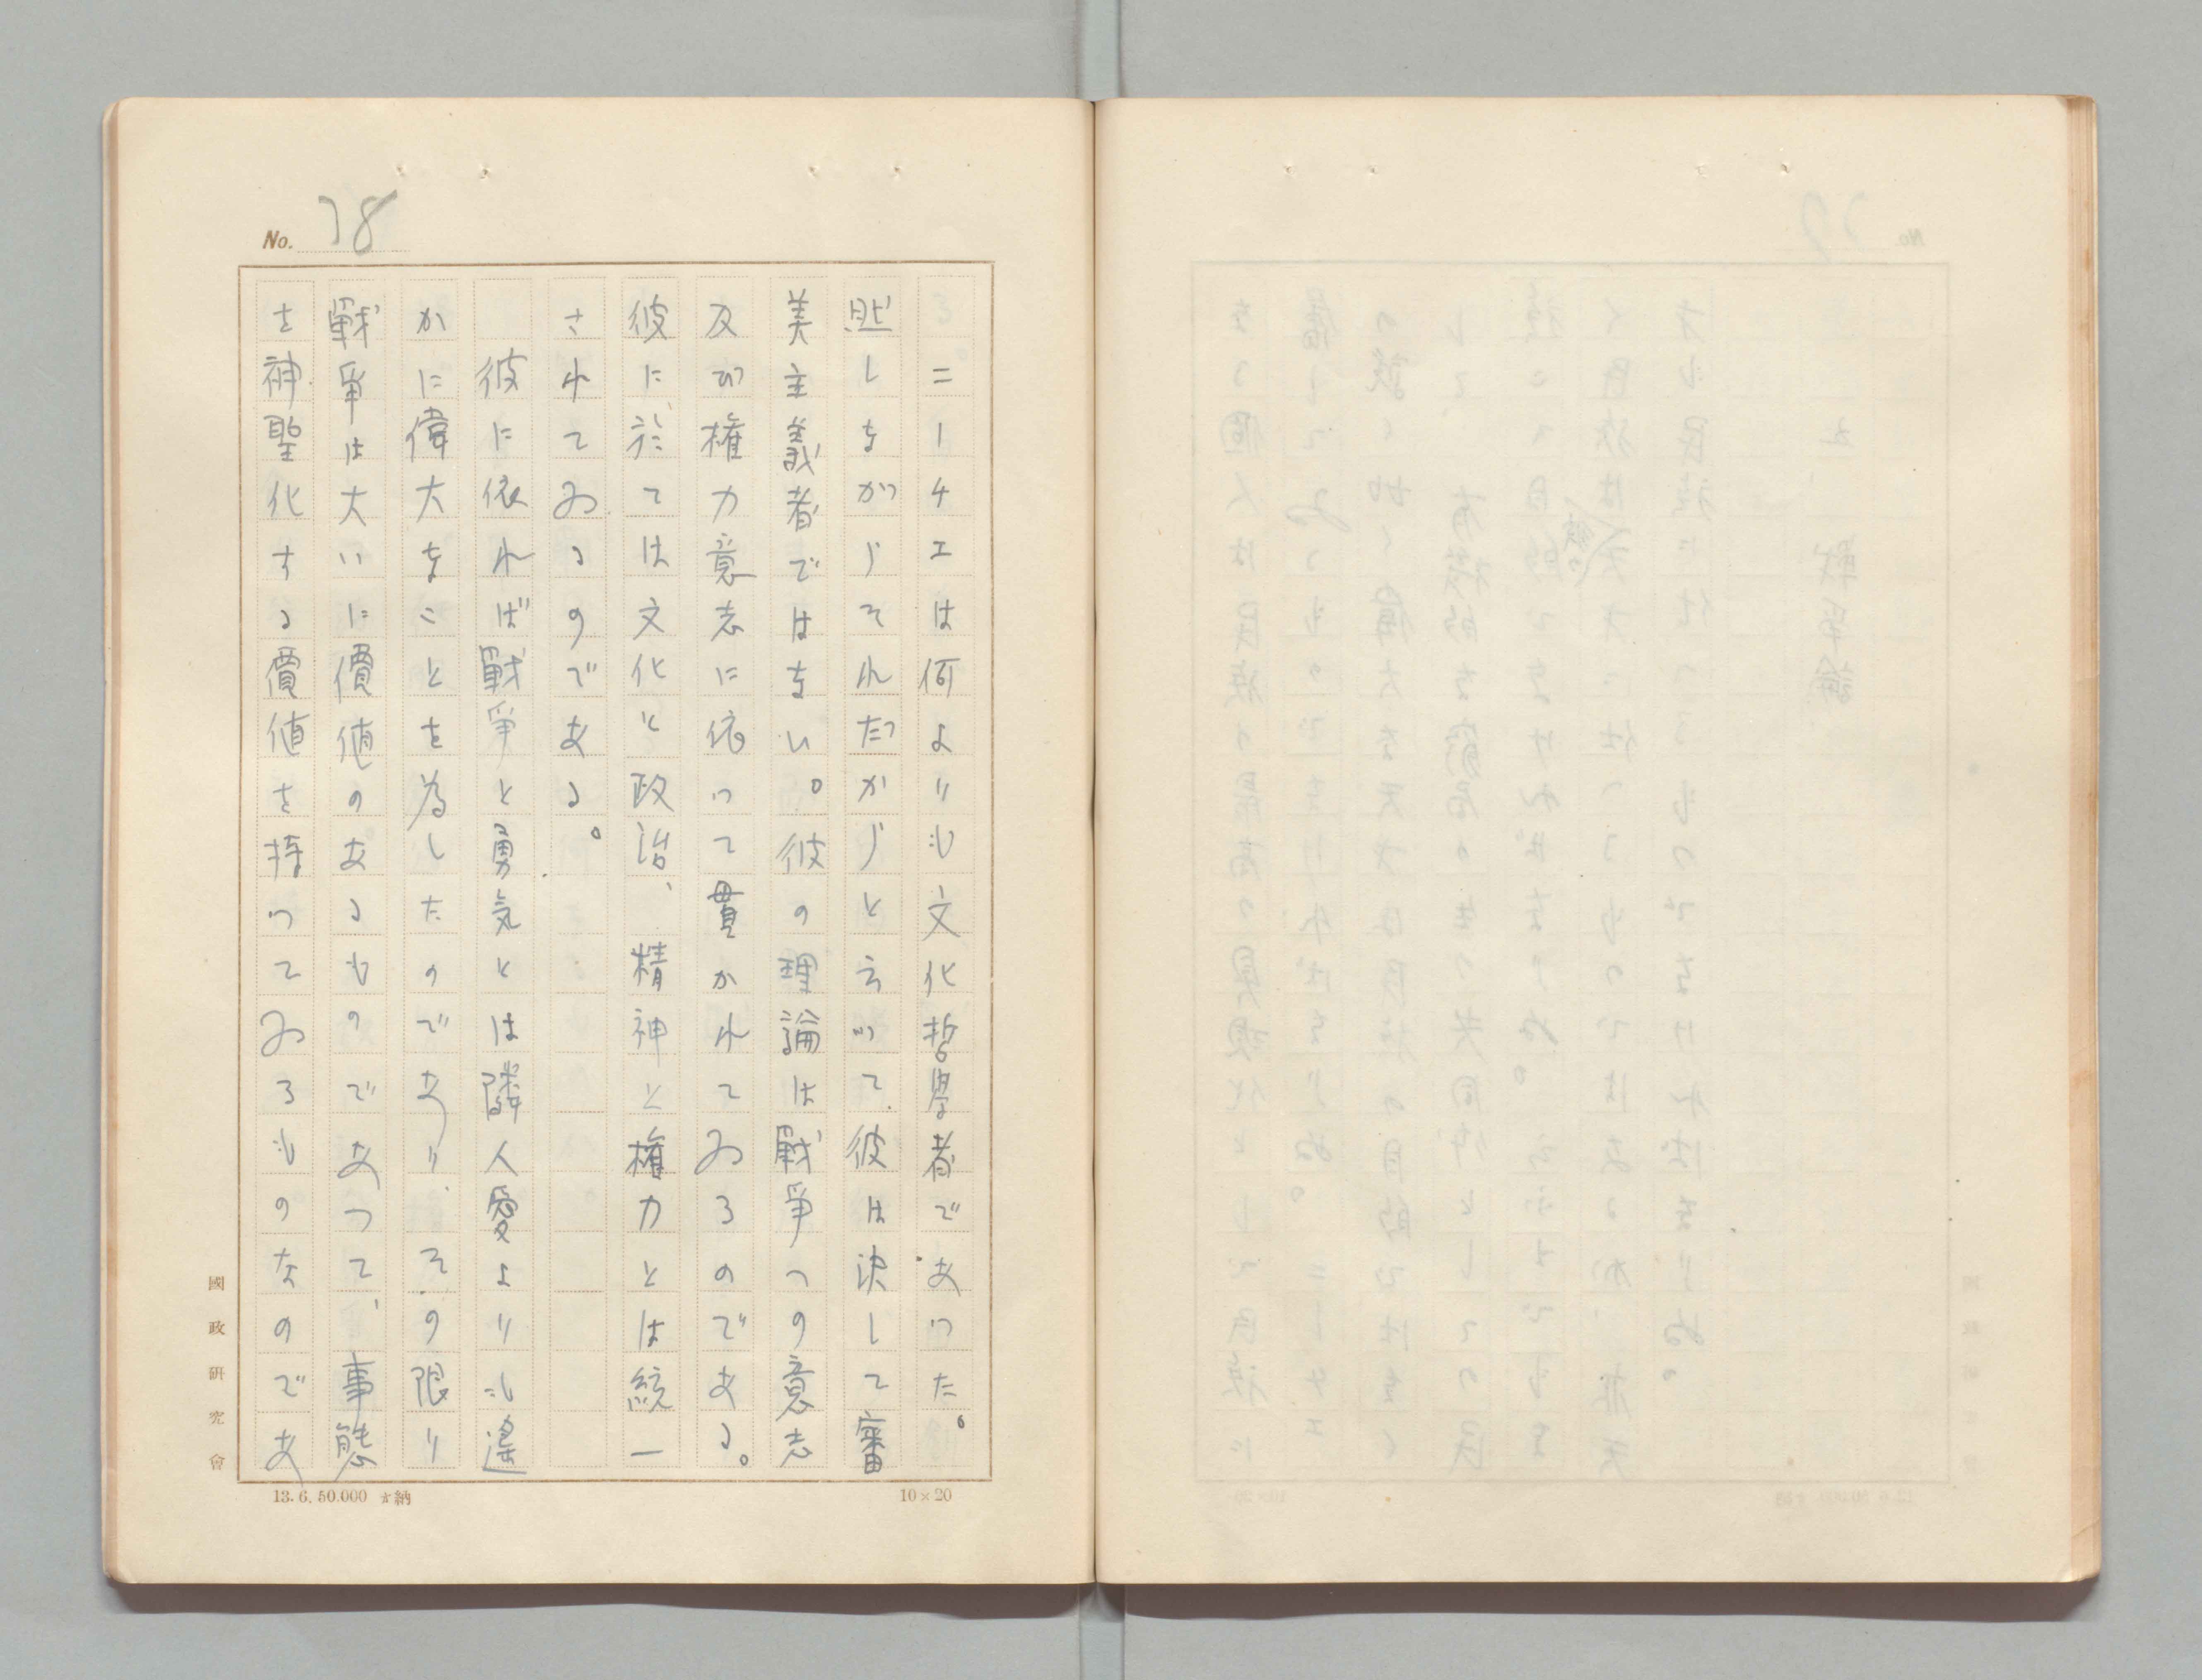 No. 78
ニーチエは何よりも文化哲學者であつた。
然しながらそれだからと云つて彼は決して審
美主義者ではない。彼の理論は戰爭への意志
及び權力意志に依つて貫かれてゐるのである。
彼に於ては文化と政治、精神と權力とは統一
されてゐるのである。
彼に依れば戰爭と勇気とは隣人愛よりも遙
かに偉大なことを為したのであり、その限り
戰爭は大いに價値のあるものであつて、事態
を神聖化する價値を持つてゐるものなのであ
國政研究會
13.6.50.000 納
10×20